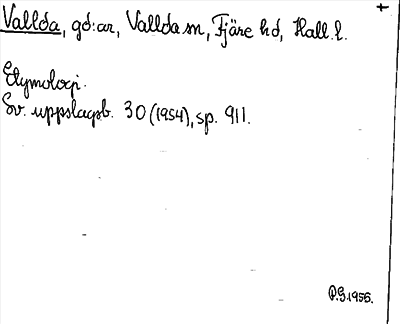 +
Vallda, gd:ar, Vallda sn, Fjäre hd, Hall. l.
Etymologi.
Sv. uppslagsb. 30 (1954), sp. 911.
P.G. 1956.